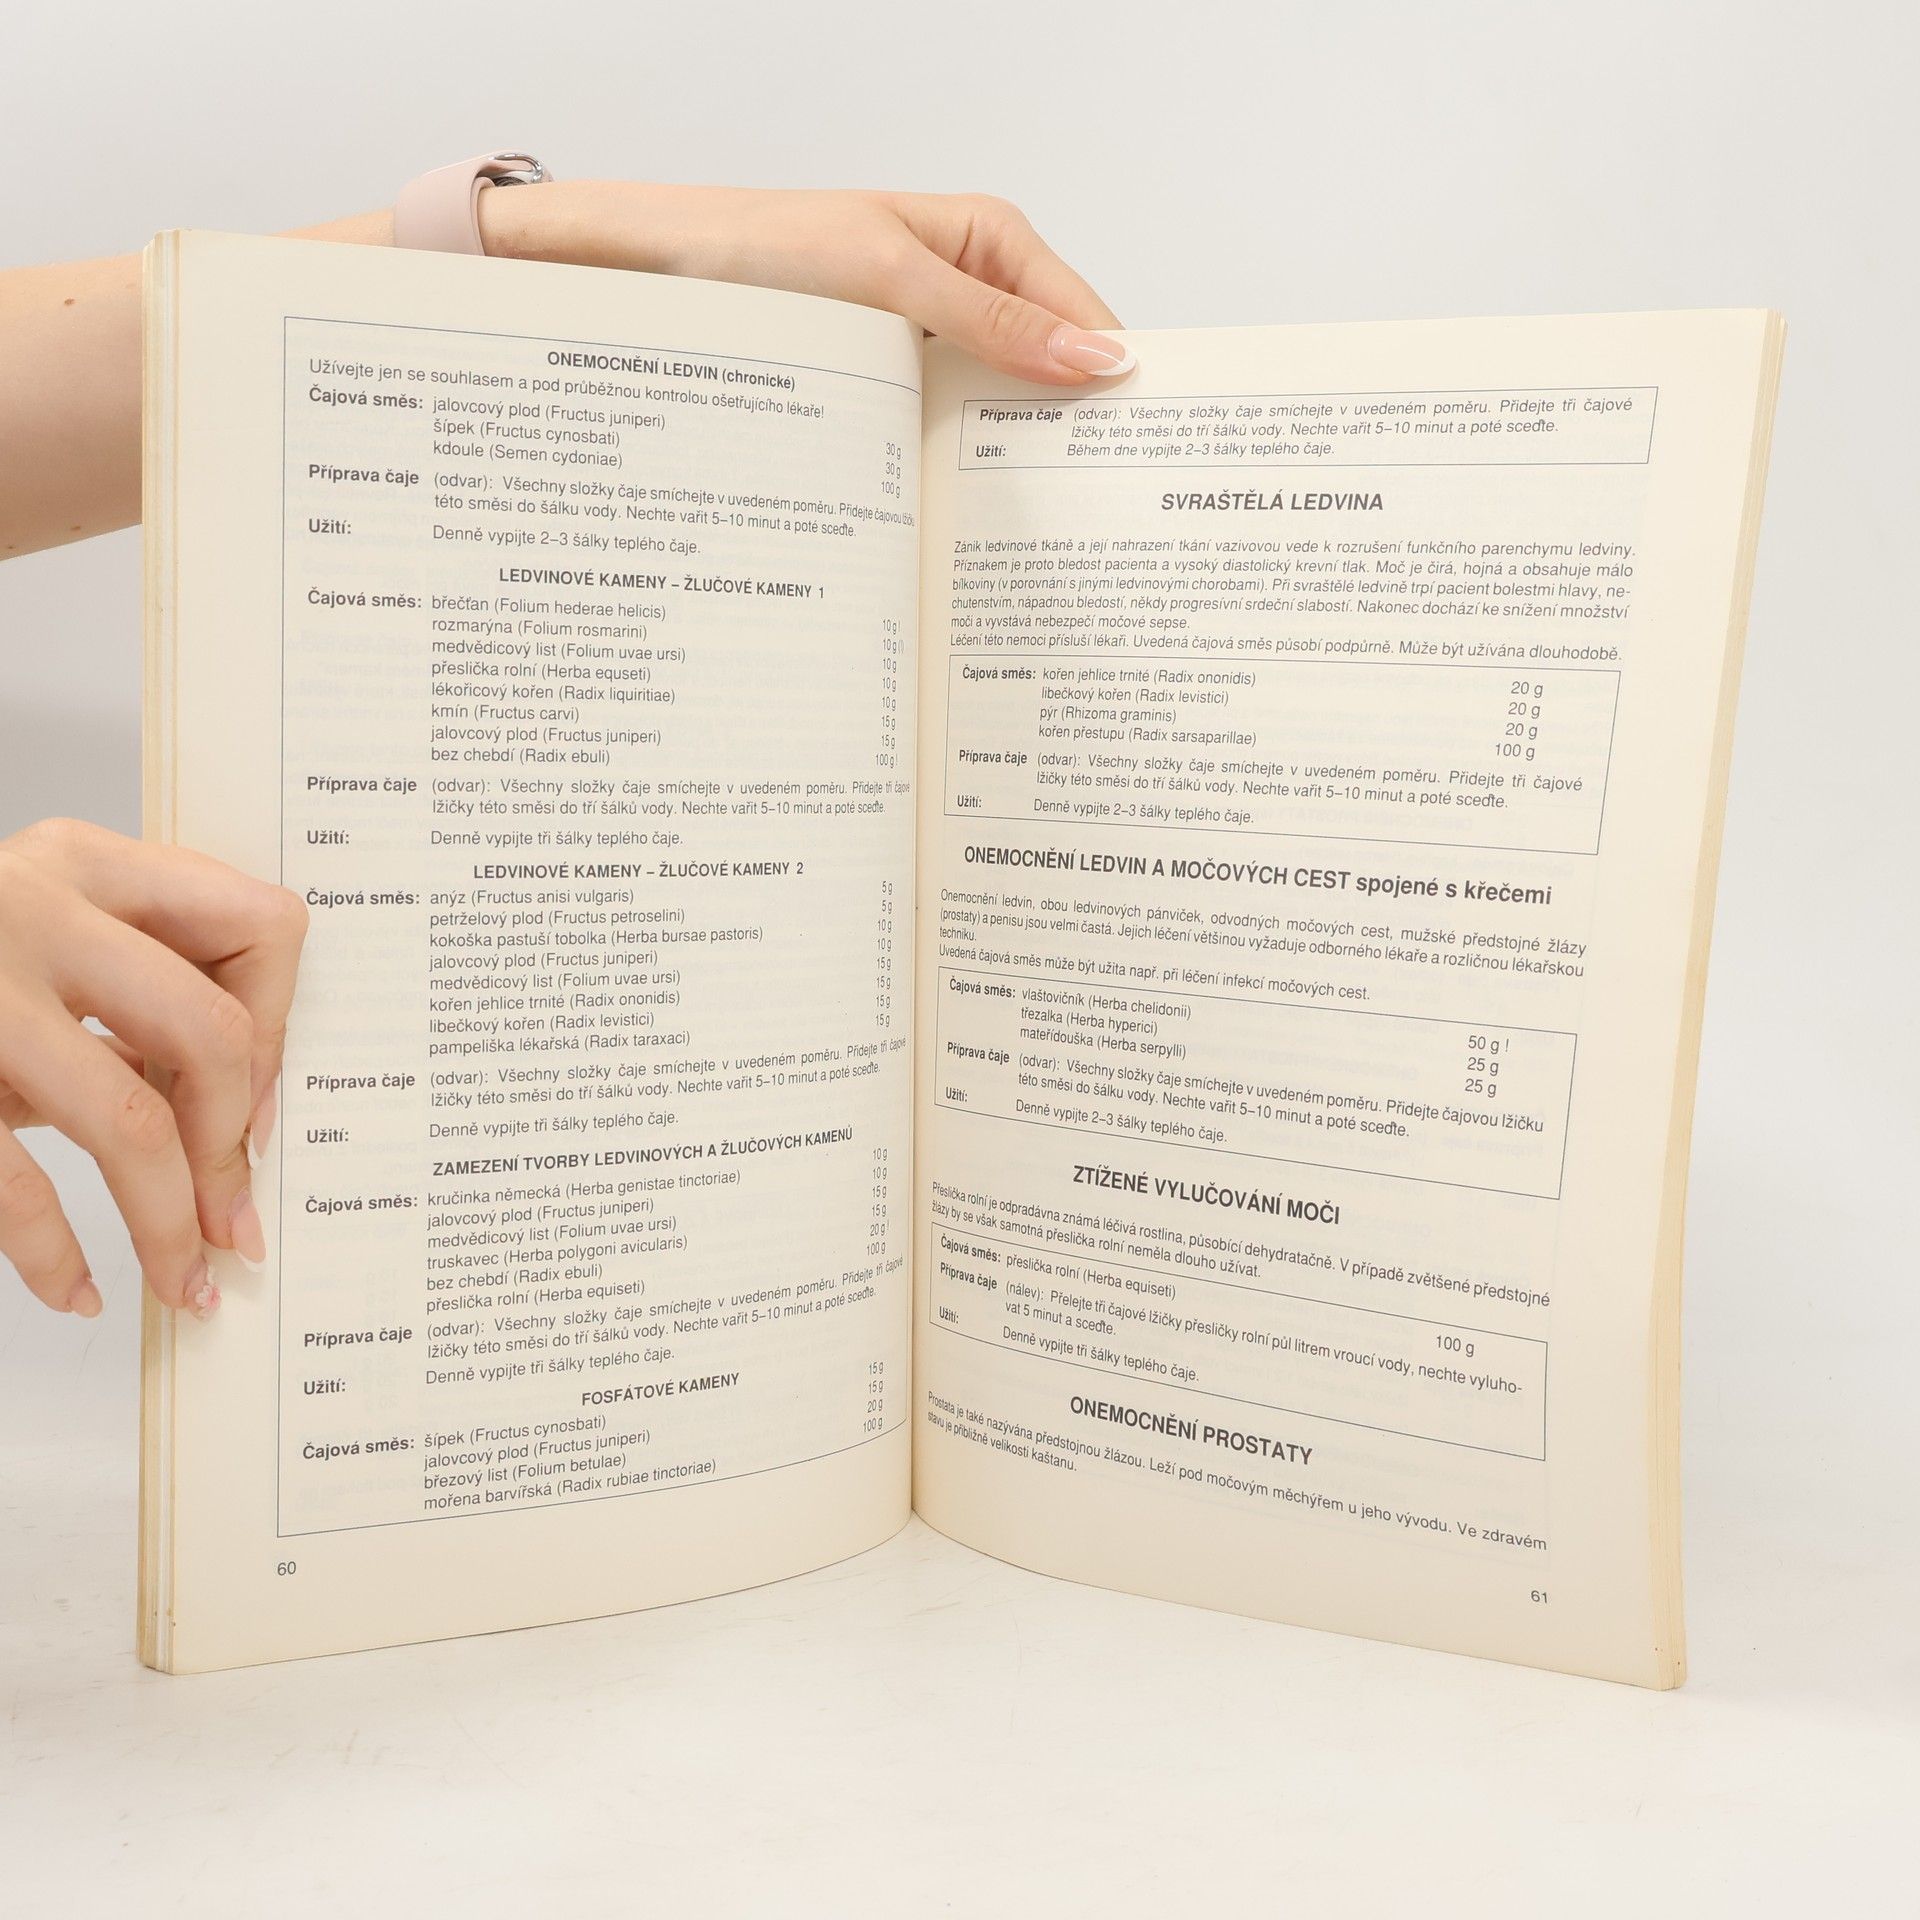 ONEMOCNĚNÍ LEDVIN (chronické)
Užívejte jen se souhlasem a pod průběžnou kontrolou ošetřujícího lékaře!
Čajová směs: jalovcový plod (Fructus juniperi) 30 g
šípek (Fructus cynosbati) 30 g
kdoule (Semen cydoniae) 100 g
Příprava čaje (odvar): Všechny složky čaje smíchejte v uvedeném poměru. Přidejte čajovou lžičku
této směsi do šálku vody. Nechte vařit 5–10 minut a poté sceďte.
Užití: Denně vypijte 2–3 šálky teplého čaje.
LEDVINOVÉ KAMENY – ŽLUČOVÉ KAMENY 1
Čajová směs: břečťan (Folium hederae helicis) 10 g !
rozmarýna (Folium rosmarini) 10 g (!)
medvědicový list (Folium uvae ursi) 10 g
přeslička rolní (Herba equseti) 10 g
lékořicový kořen (Radix liquiritiae) 10 g
kmín (Fructus carvi) 15 g
jalovcový plod (Fructus juniperi) 15 g
bez chebdí (Radix ebuli) 100 g !
Příprava čaje (odvar): Všechny složky čaje smíchejte v uvedeném poměru. Přidejte tři čajové
lžičky této směsi do tří šálků vody. Nechte vařit 5–10 minut a poté sceďte.
Užití: Denně vypijte tři šálky teplého čaje.
LEDVINOVÉ KAMENY – ŽLUČOVÉ KAMENY 2
Čajová směs: anýz (Fructus anisi vulgaris) 5 g
petrželový plod (Fructus petroselini) 5 g
kokoška pastuší tobolka (Herba bursae pastoris) 10 g
jalovcový plod (Fructus juniperi) 10 g
medvědicový list (Folium uvae ursi) 15 g
kořen jehlice trnité (Radix ononidis) 15 g
libečkový kořen (Radix levistici) 15 g
pampeliška lékařská (Radix taraxaci) 15 g
Příprava čaje (odvar): Všechny složky čaje smíchejte v uvedeném poměru. Přidejte tři čajové
lžičky této směsi do tří šálků vody. Nechte vařit 5–10 minut a poté sceďte.
Užití: Denně vypijte tři šálky teplého čaje.
ZAMEZENÍ TVORBY LEDVINOVÝCH A ŽLUČOVÝCH KAMENŮ
Čajová směs: kručinka německá (Herba genistae tinctoriae) 10 g
jalovcový plod (Fructus juniperi) 10 g
medvědicový list (Folium uvae ursi) 15 g
truskavec (Herba polygoni avicularis) 15 g
bez chebdí (Radix ebuli) 20 g !
přeslička rolní (Herba equiseti) 100 g
Příprava čaje (odvar): Všechny složky čaje smíchejte v uvedeném poměru. Přidejte tři čajové
lžičky této směsi do tří šálků vody. Nechte vařit 5–10 minut a poté sceďte.
Užití: Denně vypijte tři šálky teplého čaje.
FOSFÁTOVÉ KAMENY
Čajová směs: šípek (Fructus cynosbati) 15 g
jalovcový plod (Fructus juniperi) 15 g
březový list (Folium betulae) 20 g
mořena barvířská (Radix rubiae tinctoriae) 100 g
60
Příprava čaje (odvar): Všechny složky čaje smíchejte v uvedeném poměru. Přidejte tři čajové
lžičky této směsi do tří šálků vody. Nechte vařit 5–10 minut a poté sceďte.
Užití: Během dne vypijte 2–3 šálky teplého čaje.
SVRAŠTĚLÁ LEDVINA
Zánik ledvinové tkáně a její nahrazení tkání vazivovou vede k rozrušení funkčního parenchymu ledviny.
Příznakem je proto bledost pacienta a vysoký diastolický krevní tlak. Moč je čirá, hojná a obsahuje málo
bílkoviny (v porovnání s jinými ledvinovými chorobami). Při svraštělé ledvině trpí pacient bolestmi hlavy, ne-
chutenstvím, nápadnou bledostí, někdy progresívní srdeční slabostí. Nakonec dochází ke snížení množství
moči a vyvstává nebezpečí močové sepse.
Léčení této nemoci přísluší lékaři. Uvedená čajová směs působí podpůrně. Může být užívána dlouhodobě.
Čajová směs: kořen jehlice trnité (Radix ononidis) 20 g
libečkový kořen (Radix levistici) 20 g
pýr (Rhizoma graminis) 20 g
kořen přestupu (Radix sarsaparillae) 100 g
Příprava čaje (odvar): Všechny složky čaje smíchejte v uvedeném poměru. Přidejte tři čajové
lžičky této směsi do tří šálků vody. Nechte vařit 5–10 minut a poté sceďte.
Užití: Denně vypijte 2–3 šálky teplého čaje.
ONEMOCNĚNÍ LEDVIN A MOČOVÝCH CEST spojené s křečemi
Onemocnění ledvin, obou ledvinových pánviček, odvodných močových cest, mužské předstojné žlázy
(prostaty) a penisu jsou velmi častá. Jejich léčení většinou vyžaduje odborného lékaře a rozličnou lékařskou
techniku.
Uvedená čajová směs může být užita např. při léčení infekcí močových cest.
Čajová směs: vlaštovičník (Herba chelidonii) 50 g !
třezalka (Herba hyperici) 25 g
mateřídouška (Herba serpylli) 25 g
Příprava čaje (odvar): Všechny složky čaje smíchejte v uvedeném poměru. Přidejte čajovou lžičku
této směsi do šálku vody. Nechte vařit 5–10 minut a poté sceďte.
Užití: Denně vypijte 2–3 šálky teplého čaje.
ZTÍŽENÉ VYLUČOVÁNÍ MOČI
Přeslička rolní je odpradávna známá léčivá rostlina, působící dehydratačně. V případě zvětšené předstojné
žlázy by se však samotná přeslička rolní neměla dlouho užívat.
Čajová směs: přeslička rolní (Herba equiseti) 100 g
Příprava čaje (nálev): Přelejte tři čajové lžičky přesličky rolní půl litrem vroucí vody, nechte vyluho-
vat 5 minut a sceďte.
Užití: Denně vypijte tři šálky teplého čaje.
ONEMOCNĚNÍ PROSTATY
Prostata je také nazývána předstojnou žlázou. Leží pod močovým měchýřem u jeho vývodu. Ve zdravém
stavu je přibližně velikosti kaštanu.
61